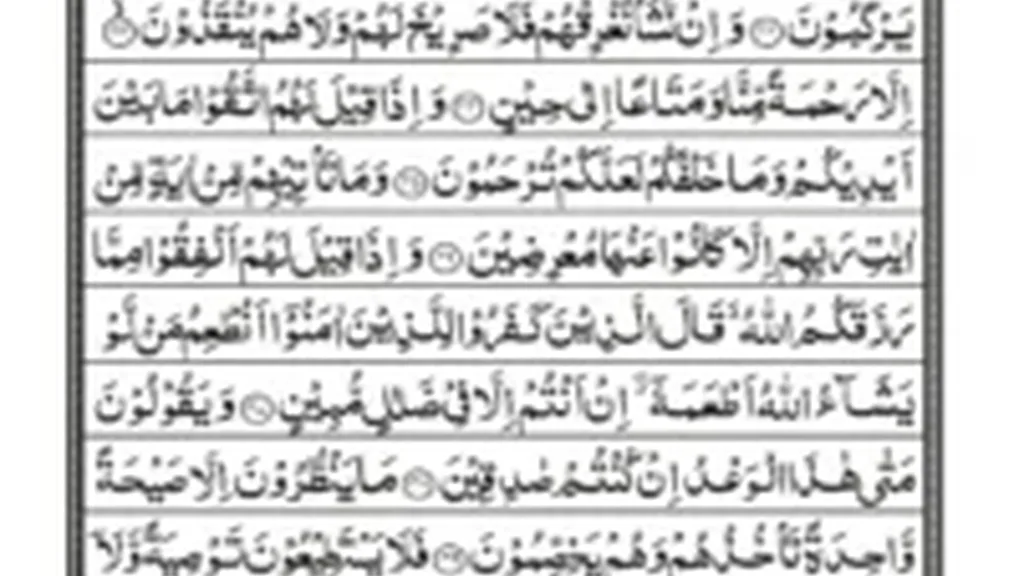 يَرْكَبُوْنَ ۝ وَ اِنْ نَّشَاْ نُغْرِقْهُمْ فَلَا صَرِيْخَ لَهُمْ وَلَا هُمْ يُنْقَذُوْنَ ۝
اِلَّا رَحْمَةً مِّنَّا وَمَتَاعًا اِلٰى حِيْنٍ ۝ وَ اِذَا قِيْلَ لَهُمُ اتَّقُوْا مَا بَيْنَ
اَيْدِيْكُمْ وَمَا خَلْفَكُمْ لَعَلَّكُمْ تُرْحَمُوْنَ ۝ وَمَا تَاْتِيْهِمْ مِّنْ اٰيَةٍ مِّنْ
اٰيٰتِ رَبِّهِمْ اِلَّا كَانُوْا عَنْهَا مُعْرِضِيْنَ ۝ وَ اِذَا قِيْلَ لَهُمْ اَنْفِقُوْا مِمَّا
رَزَقَكُمُ اللّٰهُ ۙ قَالَ الَّذِيْنَ كَفَرُوْا لِلَّذِيْنَ اٰمَنُوْٓا اَنُطْعِمُ مَنْ لَّوْ
يَشَآءُ اللّٰهُ اَطْعَمَهٗٓ ۖ اِنْ اَنْتُمْ اِلَّا فِيْ ضَلٰلٍ مُّبِيْنٍ ۝ وَيَقُوْلُوْنَ
مَتٰى هٰذَا الْوَعْدُ اِنْ كُنْتُمْ صٰدِقِيْنَ ۝ مَا يَنْظُرُوْنَ اِلَّا صَيْحَةً
وَّاحِدَةً تَاْخُذُهُمْ وَهُمْ يَخِصِّمُوْنَ ۝ فَلَا يَسْتَطِيْعُوْنَ تَوْصِيَةً وَّلَآ